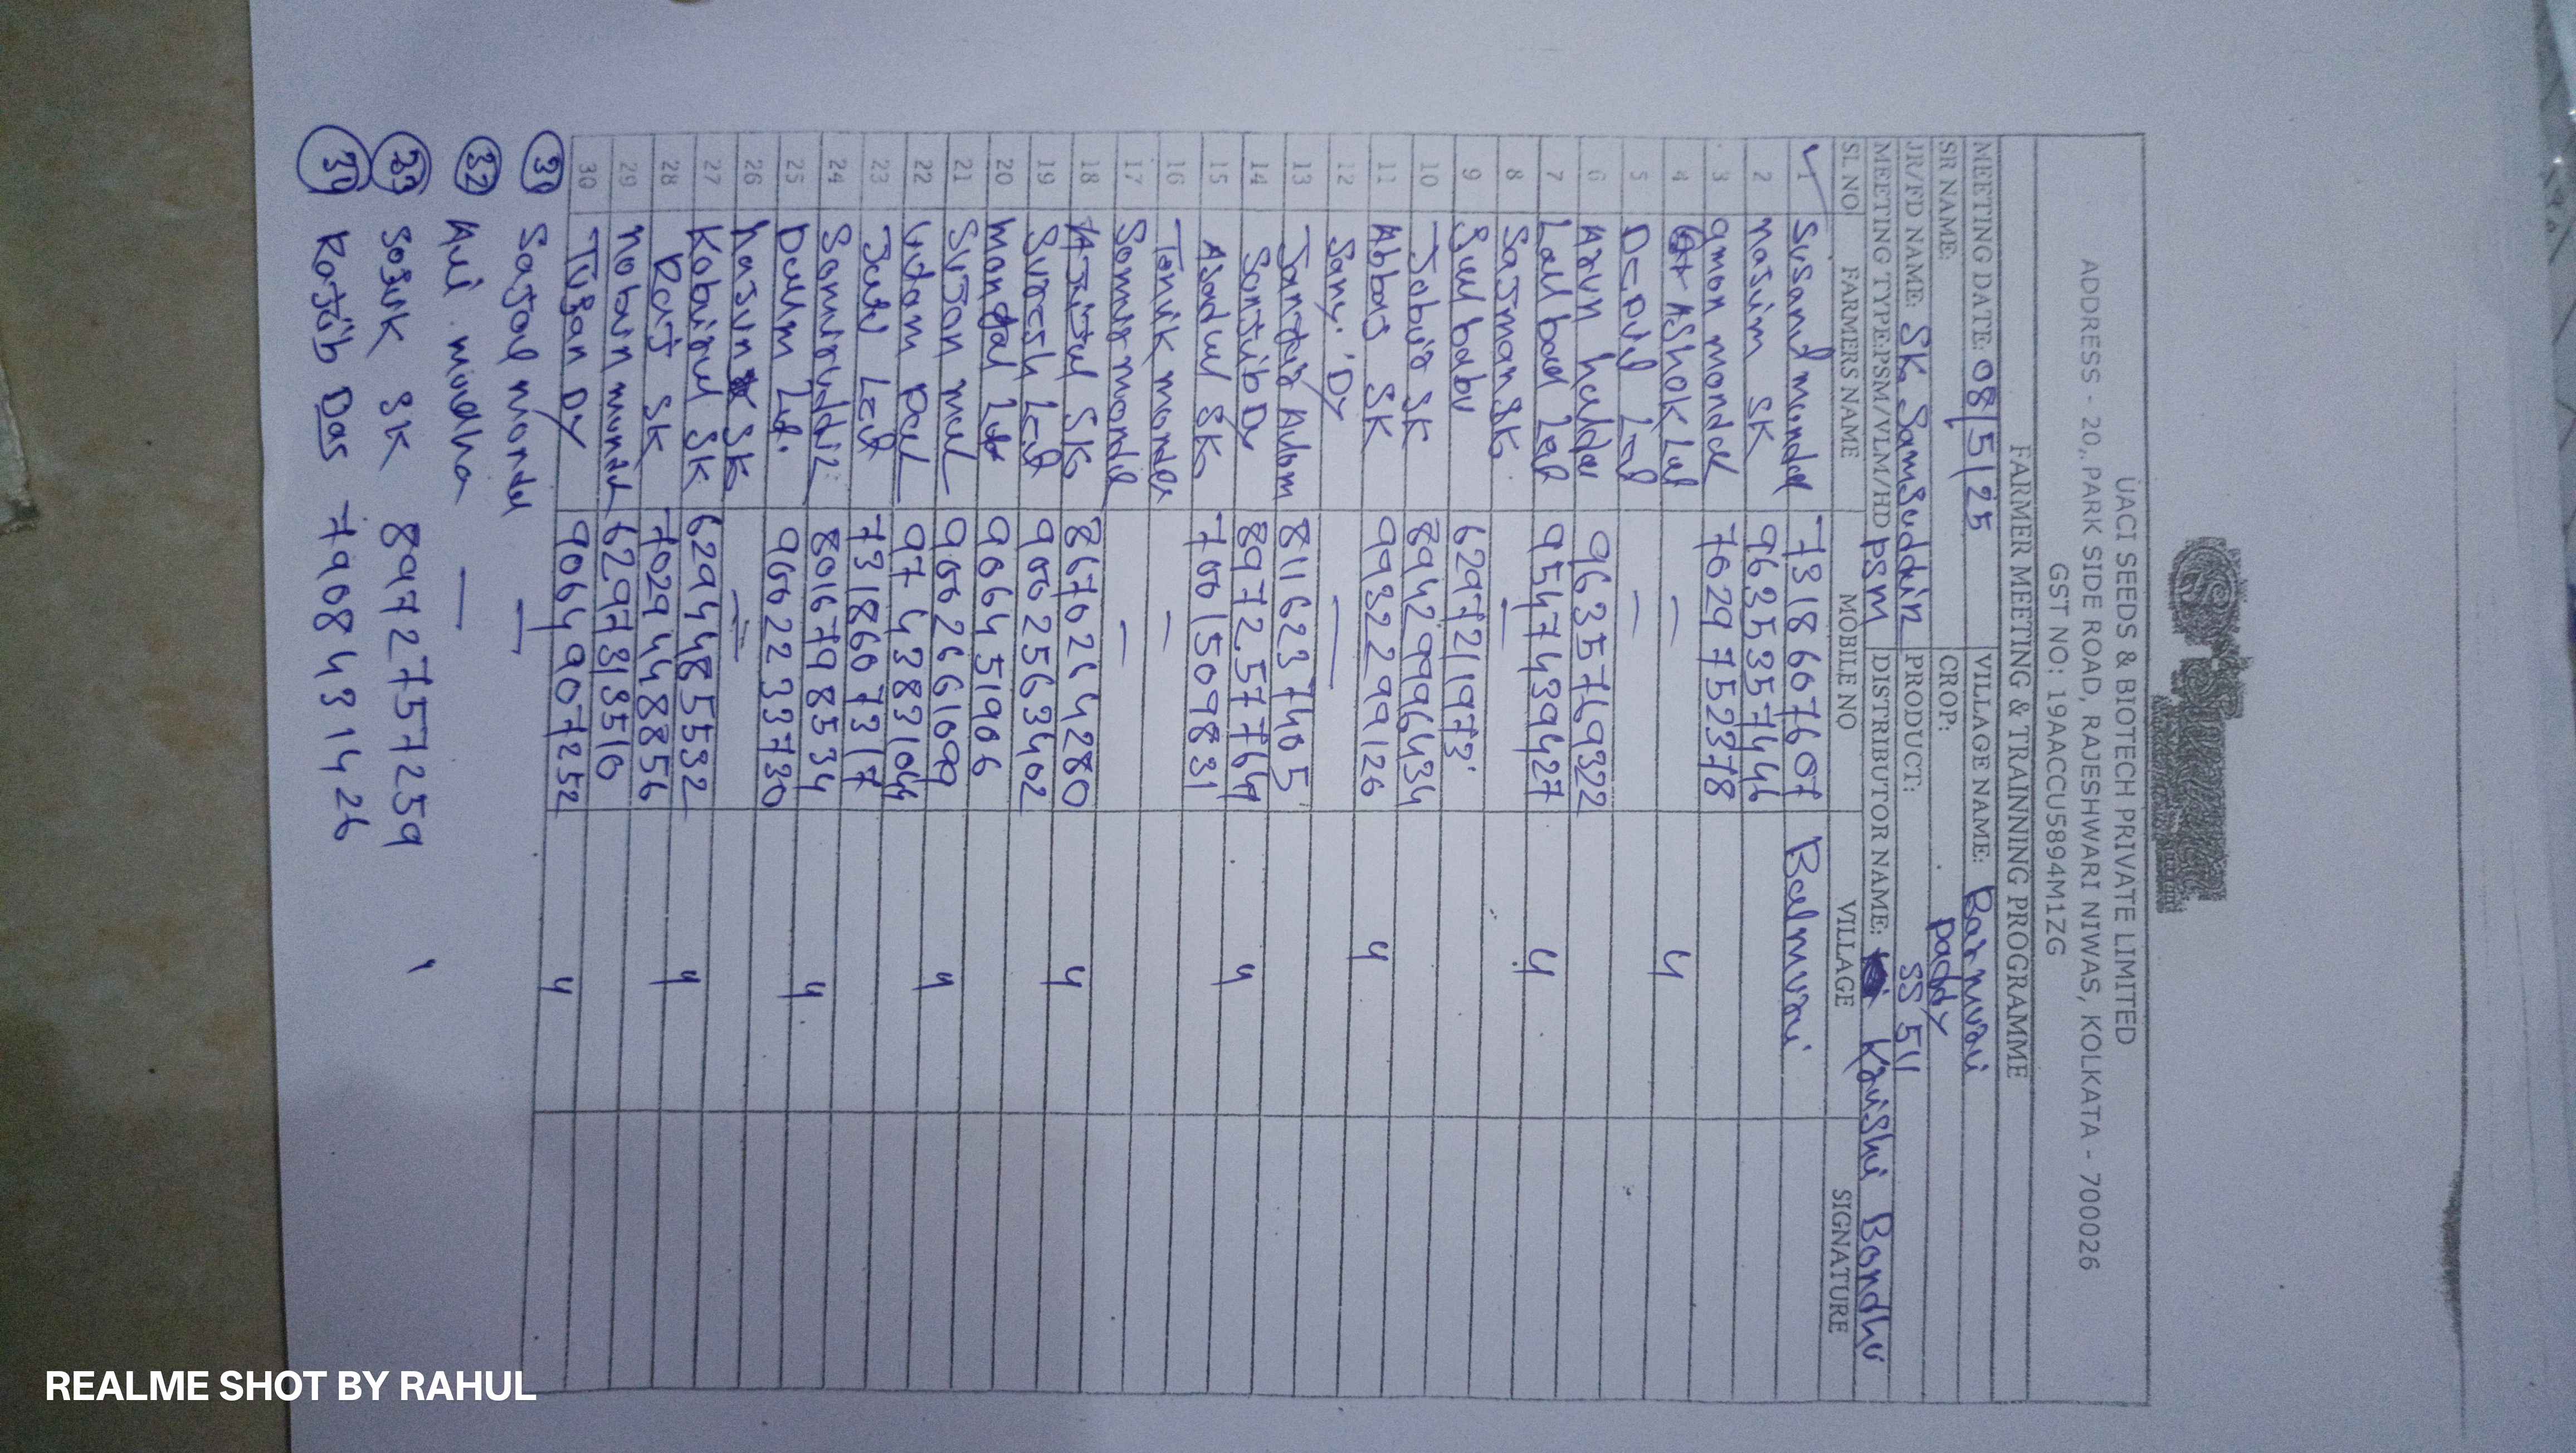 UACI SEEDS & BIOTECH PRIVATE LIMITED
ADDRESS - 20, PARK SIDE ROAD, RAJESHWARI NIWAS, KOLKATA - 700026
GST NO: 19AACCU5894M1ZG
FARMER MEETING & TRAINNING PROGRAMME
MEETING DATE: 08/5/25 VILLAGE NAME: Barmuri
SR NAME: CROP: paddy
JR/FD NAME: SK Samsuddin PRODUCT: SS 511
MEETING TYPE:PSM/VLM/HD PSM DISTRIBUTOR NAME: Krishi Bondhu
SL NO FARMERS NAME MOBILE NO VILLAGE SIGNATURE
1 Susant mondal 7318607607 Balmuri
2 nasim SK 9635357446
3 amon mondal 7629752378
4 Ashok Lal — 4
5 Lal —
6 Arun haldar 9635769322
7 Lalbad Lal 9547439427 4
8 Sajman SK —
9 babu 6297211973
10 Jabir SK 8942999643
11 Abbas SK 9932299126 4
12 Sany Dy —
13 Alam 8116237405
14 Sanjib Dy 8972577764 4
15 Asadul SK 7001509831
16 Tanik mondal —
17 mondal —
18 Ajijul SK 8670264280 4
19 Suresh Let 9002563402
20 mongal Let 9064519006
21 Sujan mal 9002661099
22 Utam Pal 9774383104 4
23 Let 7318607317
24 Samiruddin 8016798534
25 Let. 9602233730 4
26 SK —
27 Kabirul SK 6294485532
28 SK 7029448856 4
29 nobin mondal 6297313510
30 Tufan Dy 9064907252 4
31 Sajal mondal —
32 —
33 SK 8972757259
34 Rajib Das 7908431426
REALME SHOT BY RAHUL